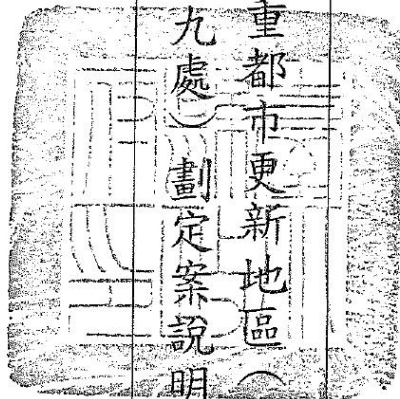 重都市更新地區（
九處）劃定案說明